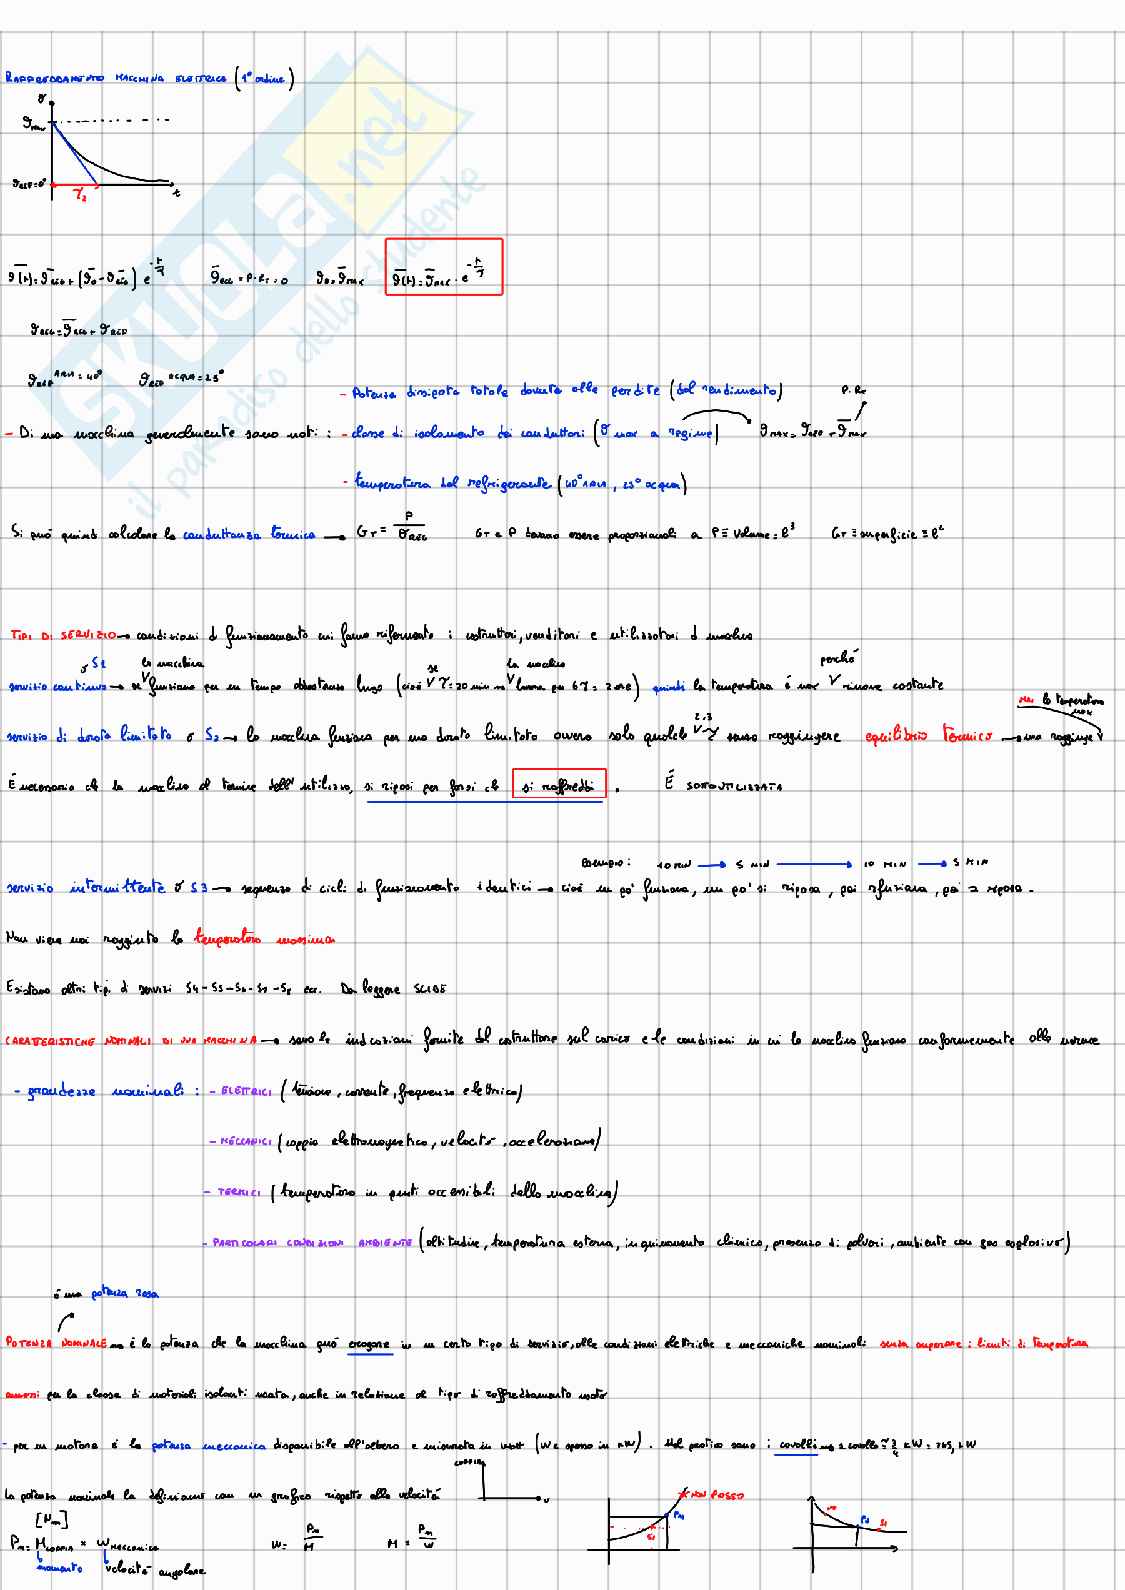 RAFFREDDAMENTO MACCHINA ELETTRICA (1° ordine)
ϑ
ϑmax
ϑRIF=0°
τ2
t
ϑ̄(t)=ϑ̄REG+(ϑ̄0-ϑ̄REG) e^-t/τ ϑ̄REG = P·RT=0 ϑ0=ϑ̄MAX ϑ̄(t)=ϑ̄MAX·e^-t/τ
ϑREG=ϑ̄REG+ϑRIF
ϑRIF ARIA=40° ϑRIF ACQUA=25°
- Potenza dissipata totale dovuta alle perdite (dal rendimento) P·RT
- Di una macchina generalmente sono noti : - classe di isolamento dei conduttori (ϑ max a regime) ϑMAX=ϑRIF+ϑ̄MAX
- temperatura del refrigerante (40° ARIA, 25° acqua)
Si può quindi calcolare la conduttanza termica → GT= P/ϑ̄REG GT e P devono essere proporzionali a P≡Volume=l³ GT≡superficie≡l²
TIPI DI SERVIZIO → condizioni di funzionamento cui fanno riferimento i costruttori, venditori e utilizzatori di macchine
o S1 la macchina se la macchina perché
servizio continuo → se V funziona per un tempo abbastanza lungo (cioè V τ=20 min V lavora per 6τ=2 ore) quindi la temperatura è max V rimane costante
MAI la temperatura max
servizio di durata limitata o S2 → la macchina funziona per una durata limitata ovvero solo qualche V τ senza raggiungere equilibrio termico → non raggiunge V
2,3
È necessario che la macchina al termine dell'utilizzo, si riposi per forza che si raffreddi . È SOTTOUTILIZZATA
Esempio: 10 MIN → 5 MIN → 10 MIN → 5 MIN
servizio intermittente o S3 → sequenza di cicli di funzionamento identici → cioè un po' funziona, un po' si riposa, poi rifunziona, poi si riposa.
Non viene mai raggiunta la temperatura massima
Esistono altri tipi di servizi S4-S5-S6-S7-S8 ecc. Da leggere SLIDE
CARATTERISTICHE NOMINALI DI UNA MACCHINA → sono le indicazioni fornite dal costruttore sul carico e le condizioni in cui la macchina funziona conformemente alle norme
- grandezze nominali : - ELETTRICI (tensione, corrente, frequenza elettrica)
- MECCANICI (coppia elettromagnetica, velocità, accelerazione)
- TERMICI (temperatura in punti accessibili della macchina)
- PARTICOLARI CONDIZIONI AMBIENTE (altitudine, temperatura esterna, inquinamento chimico, presenza di polveri, ambiente con gas esplosivo)
è una potenza resa
POTENZA NOMINALE → è la potenza che la macchina può erogare in un certo tipo di servizio, alle condizioni elettriche e meccaniche nominali senza superare i limiti di temperatura
ammessi per la classe di materiali isolanti usata, anche in relazione al tipo di raffreddamento usato
- per un motore è la potenza meccanica disponibile all'albero e misurata in watt (W e spesso in kW). Nel pratico sono i cavalli
COPPIA
La potenza nominale la definiamo con un grafico rispetto alla velocità
v
NON POSSO
Pn
S1
Pn
S1
[Nm]
Pn= MCOPPIA × WMECCANICA W= Pn/M M= Pn/W
momento velocità angolare
SKUOLA.net
il paradiso dello studente